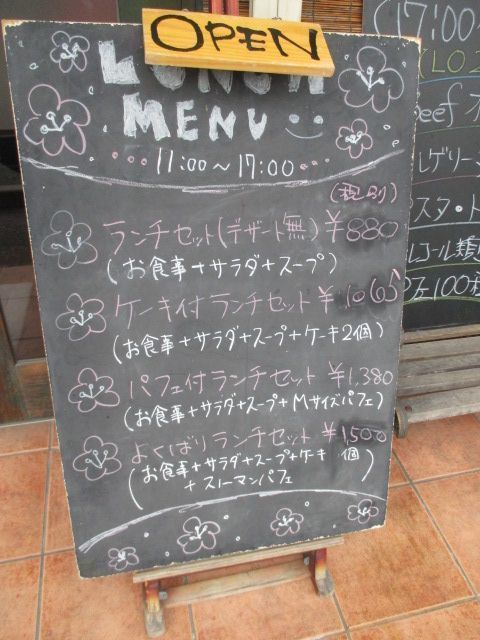 OPEN
LUNCH
MENU
11:00~17:00
(税別)
ランチセット(デザート無) ¥880
(お食事+サラダ+スープ)
ケーキ付ランチセット ¥1065
(お食事+サラダ+スープ+ケーキ2個)
パフェ付ランチセット ¥1,380
(お食事+サラダ+スープ+Mサイズパフェ)
よくばりランチセット ¥1,500
(お食事+サラダ+スープ+ケーキ 個
+ストーマンパフェ)
(17:00~
(LO 2
eef